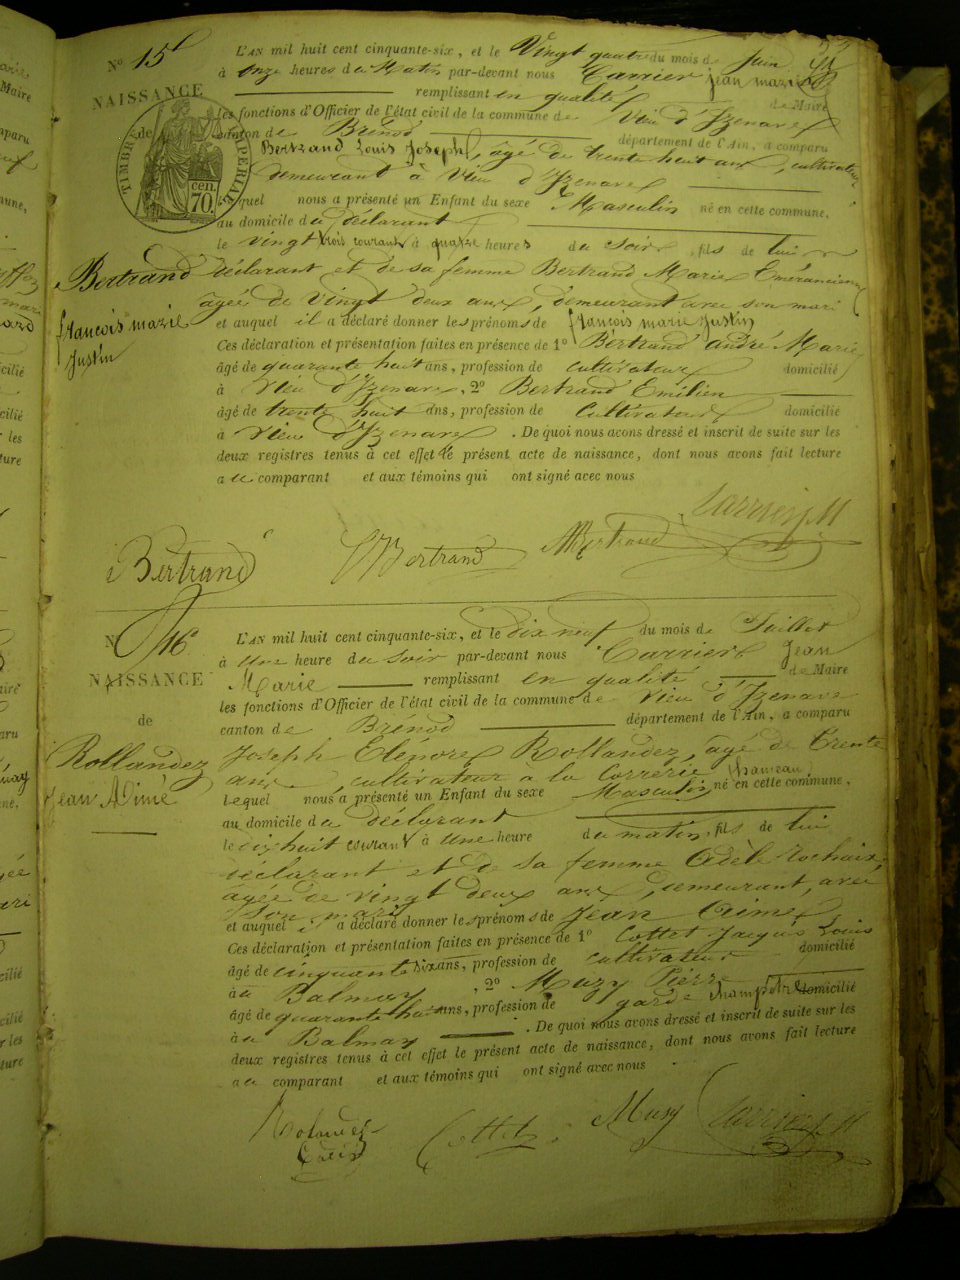 N° 15
NAISSANCE
de
TIMBRE IMPERIAL
cen. 70
L'AN mil huit cent cinquante-six, et le Vingt quatre du mois de Juin
à onze heures du Matin par-devant nous Carrier jean marie
remplissant en qualité de Maire
les fonctions d'Officier de l'état civil de la commune de Vieu d'Izenave
canton de Brénod département de l'Ain, a comparu
Bertrand Louis Joseph, âgé de trente huit ans, cultivateur
demeurant à Vieu d'Izenave
lequel nous a présenté un Enfant du sexe Masculin né en cette commune,
au domicile du déclarant
le vingt trois courant à quatre heures du soir, fils de lui
déclarant et de sa femme Bertrand Marie
âgée de vingt deux ans, demeurant avec son mari
et auquel il a déclaré donner les prénoms de françois marie Justin
Ces déclaration et présentation faites en présence de 1° Bertrand andré Marie
âgé de quarante huit ans, profession de cultivateur domicilié
à Vieu d'Izenave, 2° Bertrand Emilien
âgé de trente huit ans, profession de Cultivateur domicilié
à Vieu d'Izenave. De quoi nous avons dressé et inscrit de suite sur les
deux registres tenus à cet effet le présent acte de naissance, dont nous avons fait lecture
au comparant et aux témoins qui ont signé avec nous
Bertrand
françois marie
Justin
Carrier JM
Bertrand Bertrand Bertrand
N° 16
NAISSANCE
de
Rollandez
Jean Aimé
L'AN mil huit cent cinquante-six, et le dix neuf du mois de Juillet
à une heure du soir par-devant nous Carrier Jean
Marie remplissant en qualité de Maire
les fonctions d'Officier de l'état civil de la commune de Vieu d'Izenave
canton de Brénod département de l'Ain, a comparu
Joseph Elénore Rollandez, âgé de trente
ans, cultivateur à la Correrie, hameau,
Lequel nous a présenté un Enfant du sexe Masculin né en cette commune,
au domicile du déclarant
le dix huit courant à une heure du matin, fils de lui
déclarant et de sa femme Adèle Rochaix,
âgée de vingt deux ans, demeurant, avec
son mari
et auquel il a déclaré donner les prénoms de Jean Aimé
Ces déclaration et présentation faites en présence de 1° Cottet Jacques Louis
âgé de cinquante six ans, profession de cultivateur domicilié
à Balmay, 2° Mury Pierre
âgé de quarante huit ans, profession de garde champêtre domicilié
à Balmay. De quoi nous avons dressé et inscrit de suite sur les
deux registres tenus à cet effet le présent acte de naissance, dont nous avons fait lecture
au comparant et aux témoins qui ont signé avec nous
Rolandez Cottet Mury Carrier JM